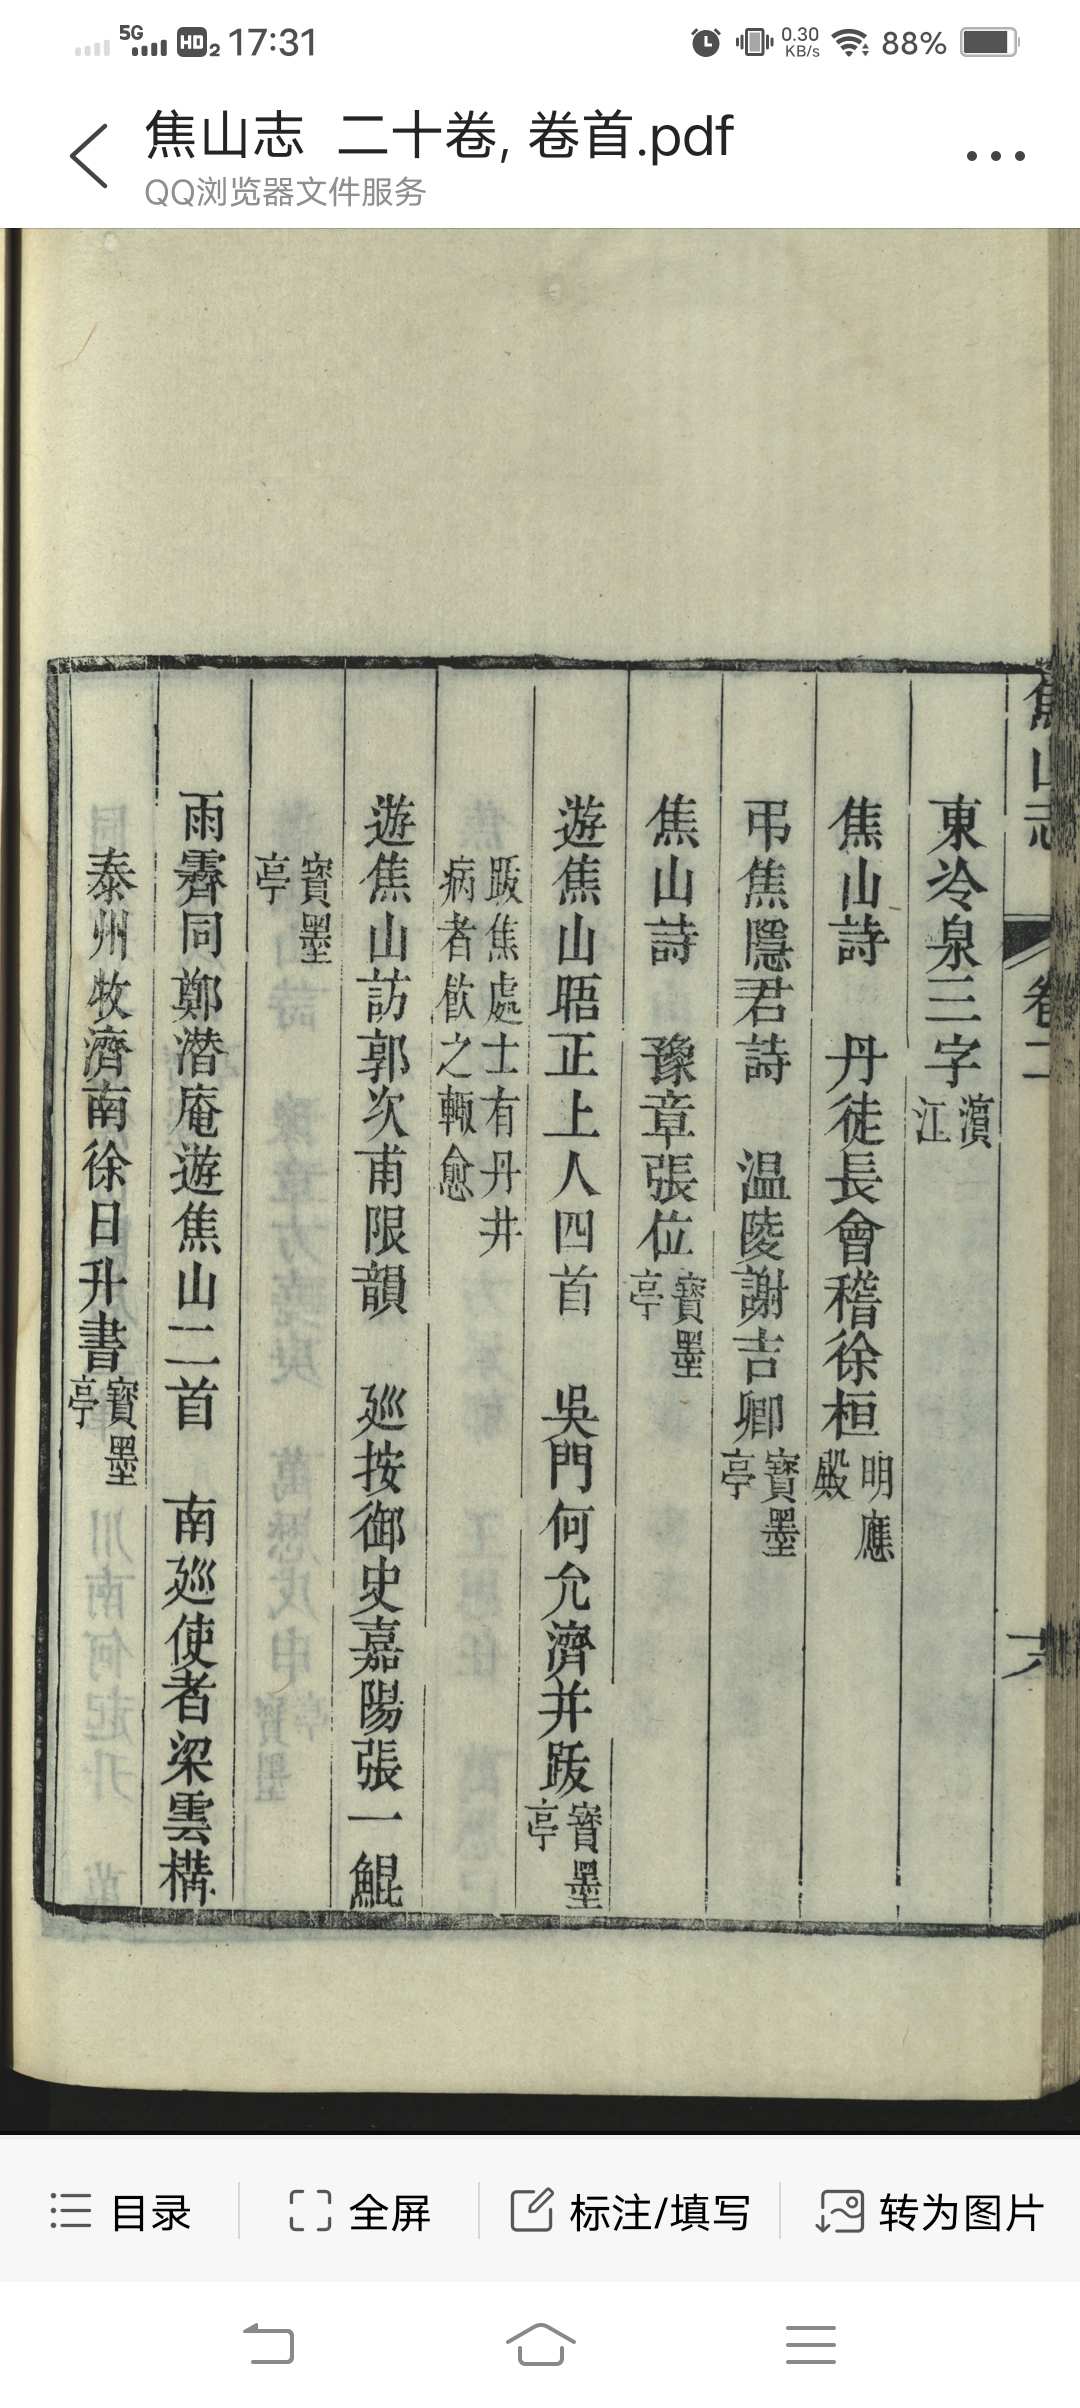 5G HD 2 17:31 0.30 KB/s 88%
焦山志 二十卷, 卷首.pdf
QQ浏览器文件服务
焦山志 卷二 六
東泠泉三字 濵江
焦山詩 丹徒長會稽徐桓 明應殿
弔焦隱君詩 温陵謝吉卿 寳墨亭
焦山詩 豫章張位 寳墨亭
遊焦山晤正上人四首 吳門何允濟并跋 寳墨亭
跋焦處士有丹井病者飲之輙愈
遊焦山訪郭次甫限韻 廵按御史嘉陽張一鯤
寳墨亭
雨霽同鄭潜庵遊焦山二首 南廵使者梁雲構
泰州牧濟南徐日升書 寳墨亭
目录 全屏 标注/填写 转为图片